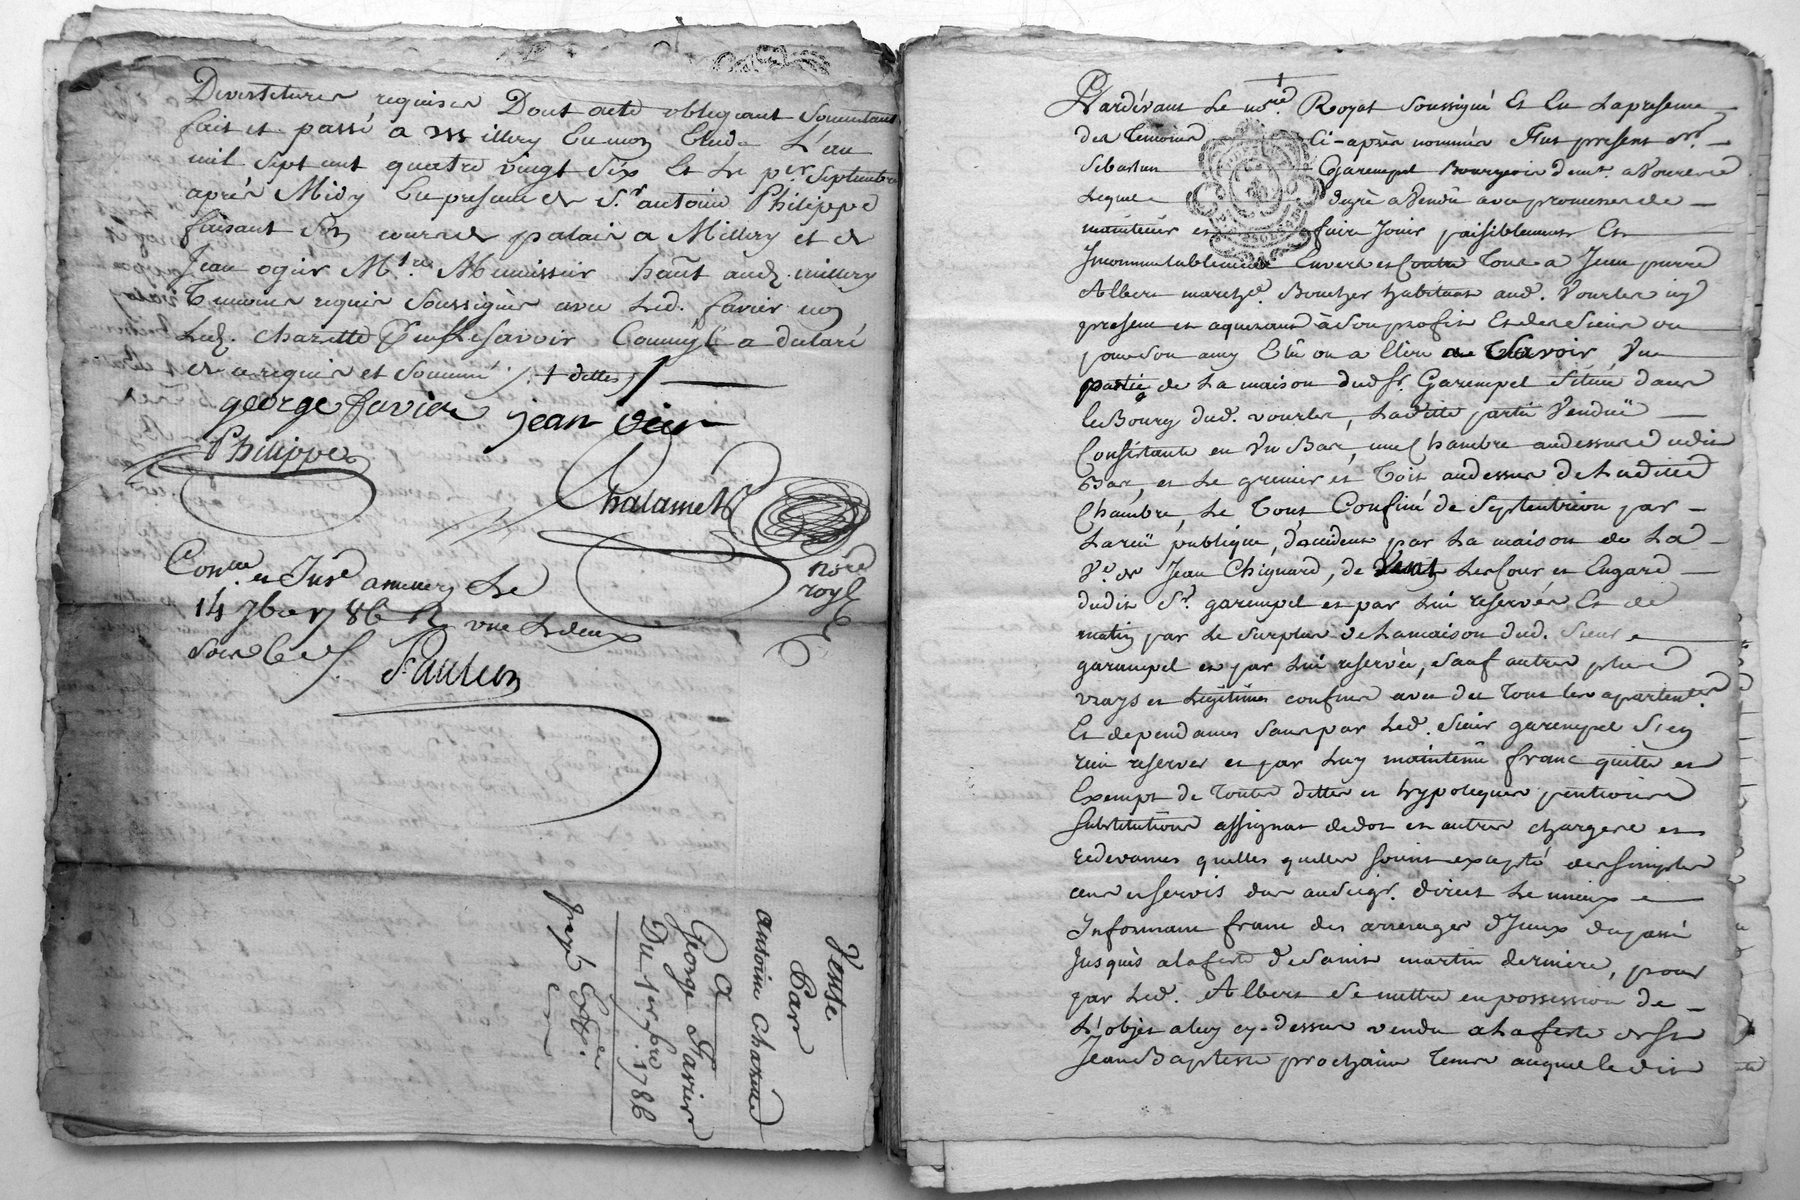 Devestitures requises Dont acte obligeant soumettant
fait et passé a Millery En mon Etude L'an
mil sept cent quatre vingt six Et Le pr. septembre
après Midy En presence de Sr. antoine Philippe
faisant son cours de palais a Millery et de
Jean ogier Mtre. Menuisier hant. aud. millery
Temoins requis soussignés avec Led. favier non
Led. Charette pour ne savoir Comme il a declaré
de ce requis et sommé ./. 1 dittes /.
george favier jean ogier
Philippe
Chalamel
nore.
royl
Conlle. et Insé a mery Le
14 7bre 1786 R une Livre deux
sols
Paulien
Vente
Par
antoine Charette
a
George Favier
Du 1er 7bre. 1786
Pardevant Le nore. Royal soussigné Et En La presence
des Temoins Ci-après nommés Fut present Sr.
Sebastien Garempel Bourgeois demt. a Vourles
Lequel degré a Vendu avec promesse de
maintenir et faire Jouir paisiblement Et
Incommutablement Envers et Contre Tous a Jean pierre
Albert marchd. Boucher habitant aud. Vourles icy
present et aquerant à son profit Et des siens ou
pour son amy Elu ou a Elire Savoir Une
partie de La maison dud. Sr. Garempel Située dans
le Bourg dud. vourles, Laditte partie Venduë
Consistante en Un Bas, une Chambre audessus dudit
Bas, et Le grenier et Toit audessus de Laditte
Chambre, Le Tout Confiné de Septentrion par
La ruë publique, d'occident par La maison de La
Ve. de Jean Chignard, de Vent Les Cour et Engard
dudit Sr. garempel et par Lui reservés Et de
matin par Le surplus de La maison dud. Sieur
garempel et par Lui reservée, sauf autres plus
vrays et Legitimes confins avec de Tous les apartences.
Et dependances sans par Led. Sieur garempel s'en
rien reserver et par Luy maintenu franc quitte et
Exempt de Toutes dettes et hypoteques pentions
Substitutions assignat de dot et autres charges et
redevances quelles quelles soint excepté des simples
cens et servis dus au seigr. direct Le mieux
Informant franc des arrerages d'Iceux du passé
Jusquès a la feste de Saint martin derniere, pour
par Led. Albert Se mettre en possession de
L'objet a luy cy-dessus vendu a La feste de St
Jean Baptiste prochaine Tems auquel ledit